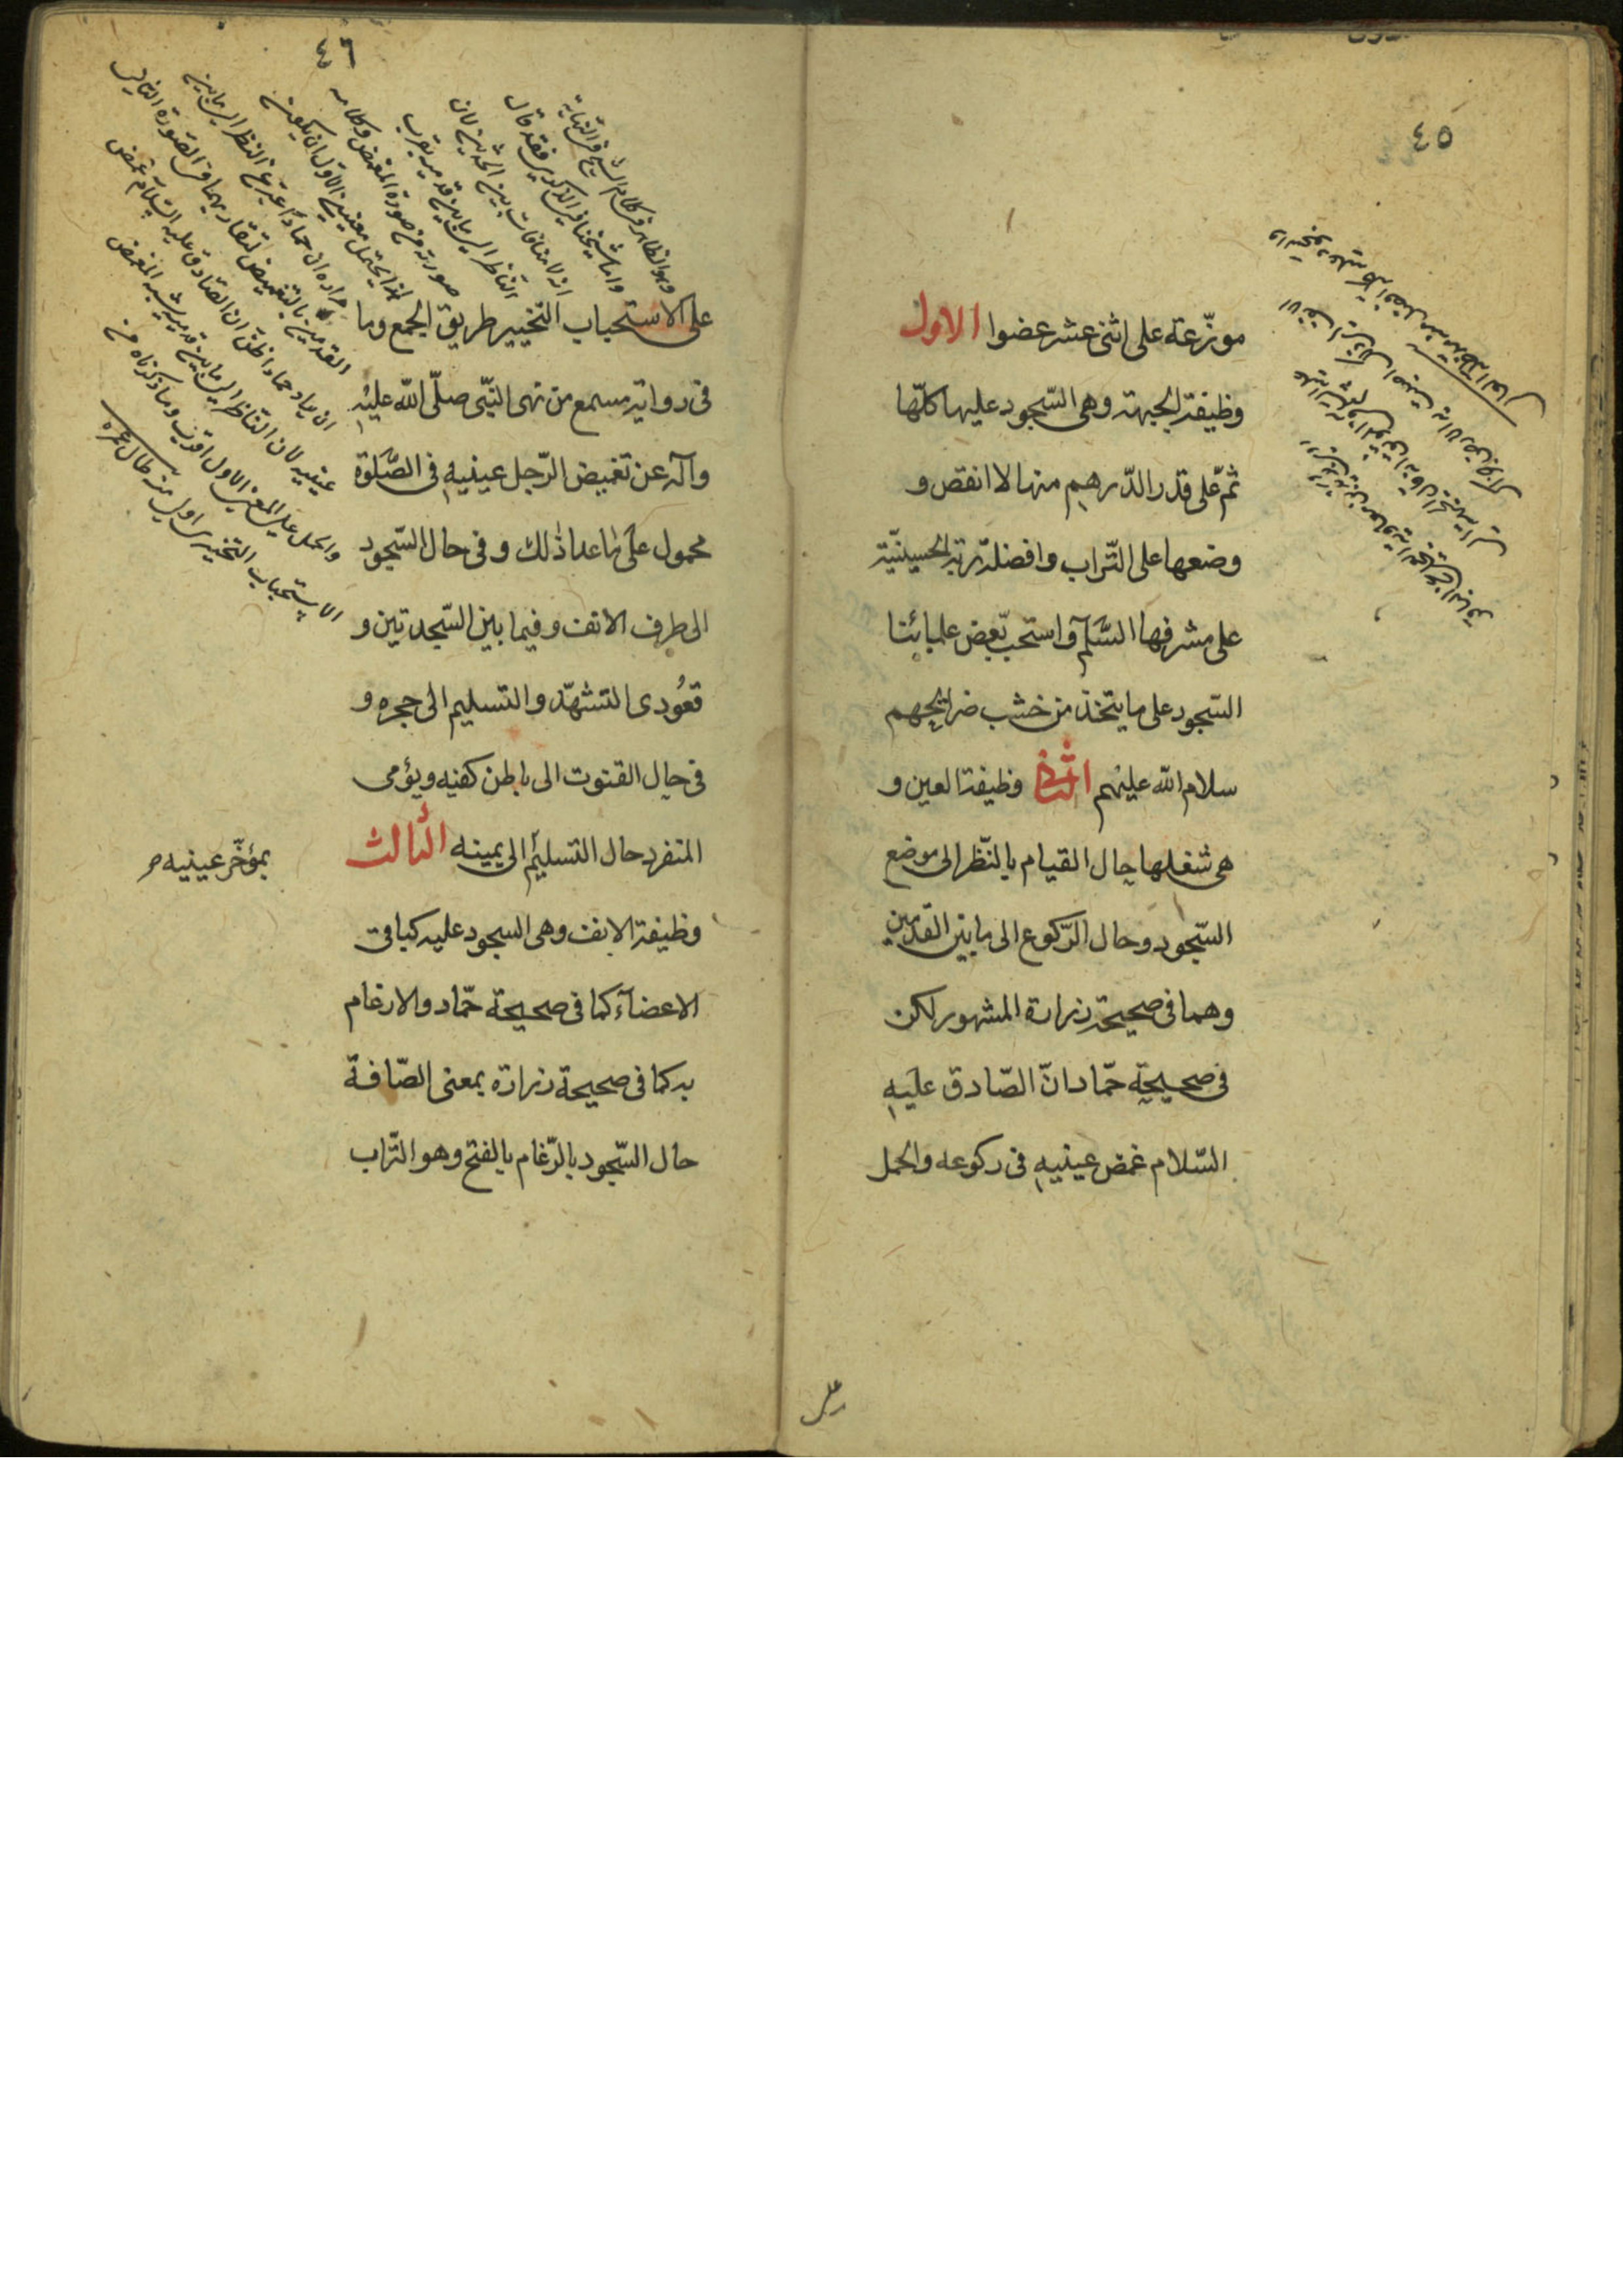 ٤٥
موزّعة على اثنى عشر عضوا الاول
وظيفة الجبهة وهى السّجود عليها كلّها
ثمّ على قدر الدّرهم منها لا انقص و
وضعها على التّراب وافضله تربة الحسينيّة
على مشرفها السّلم واستحبّ بعض علمائنا
السّجود على ما يتّخذ من خشب ضرايحهم
سلام اللّه عليهم الثانى وظيفة العين و
هى شغلها حال القيام بالنّظر الى موضع
السّجود وحال الرّكوع الى ما بين القدمين
وهما فى صحيحة زرارة المشهور لكن
فى صحيحة حمّاد انّ الصّادق عليه
السّلام غمض عينيه فى ركوعه والحمل
على
٤٦
على الاستحباب التّخيير طريق الجمع وما
فى رواية مسمع من نهى النّبّى صلّى اللّه عليه
وآله عن تغميض الرّجل عينيه فى الصّلوة
محمول على ما عدا ذلك وفى حال السّجود
الى طرف الانف وفيما بين السّجدتين و
قعُودى التشهّد والتسليم الى حجره و
فى حال القنوت الى باطن كفيه ويؤمى
المنفرد حال التسليم الى يمينه الثالث
بمؤخّر عينيه
وظيفة الانف وهى السجود عليه كباقى
الاعضآء كما فى صحيحة حمّاد والارغام
به كما فى صحيحة زرارة بمعنى الصّاقه
حال السّجود بالرّغام بالفتح وهو التّراب
وهو الظاهر من كلام الشيخ فى النهاية
واما شيخنا فى الذكرى فقد قال
انه لا منافات بين الحديثين لان
الناظر الى ما بين قدميه يقرب
صورته من صورة المغمض وكلامه
هذا يحتمل معنيين الاول ان يكون
مراده ان حمادا عبر عن النظر الى ما بين
القدمين بالتغميض لتقاربهما فى الصورة الثانى
ان حمادا ظن ان الصادق عليه السلام غمض
عينيه لان الناظر الى ما بين قدميه يشبه المغمض
والحمل على المعنى الاول اقرب وما ذكرناه من
الاستحباب التخييرى اولى منه طال عمره